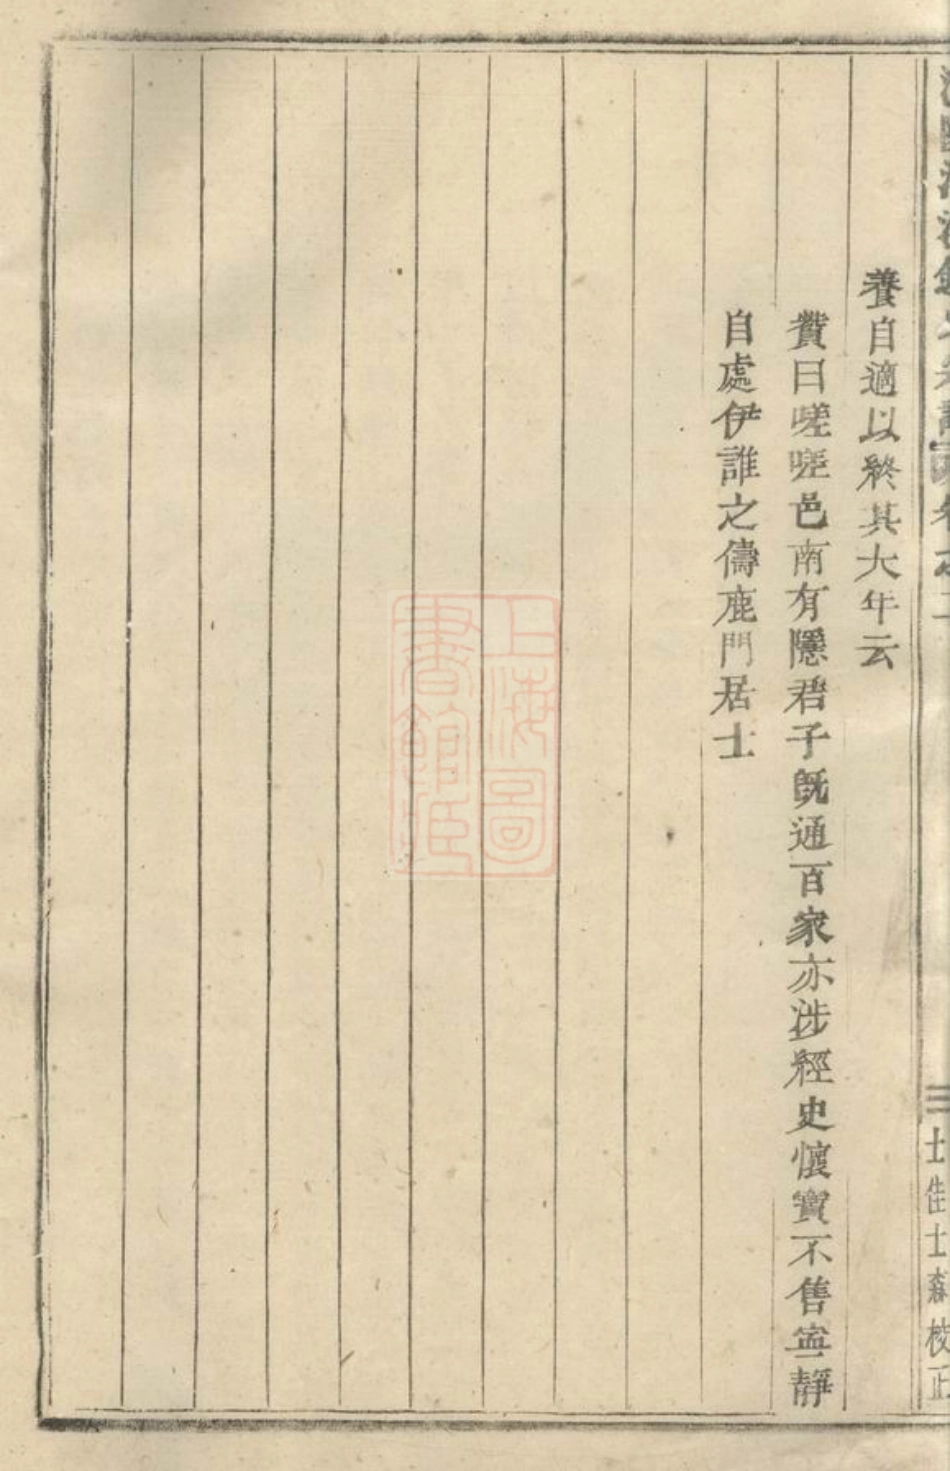 養自適以終其大年云
贊曰嗟嗟邑南有隱君子既通百家亦涉經史懷寶不售寧靜
自處伊誰之儔鹿門居士
三 士佳士森校正
上海圖書館藏